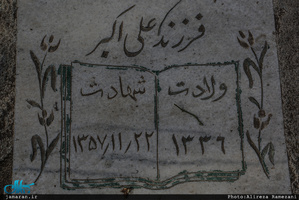 فرزند علی اکبر
ولادت شهادت
۱۳۳۶ ۱۳۵۷/۱۱/۲۲
jamaran.ir
Photo:Alireza Ramezani